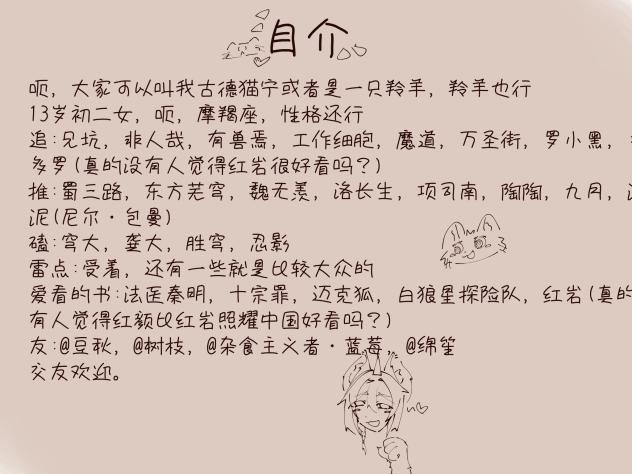 自介
呃，大家可以叫我古德猫宁或者是一只羚羊，羚羊也行
13岁初二女，呃，摩羯座，性格还行
追：兄坑，非人哉，有兽焉，工作细胞，魔道，万圣街，罗小黑，
多罗(真的没有人觉得红岩很好看吗？)
推：蜀三路，东方芜穹，魏无羡，洛长生，项司南，陶陶，九月，
泥(尼尔·包曼)
磕：穹大，龚大，胜穹，忍影
雷点：受着，还有一些就是比较大众的
爱看的书：法医秦明，十宗罪，迈克狐，白狼星探险队，红岩(真的
有人觉得红颜比红岩照耀中国好看吗？)
友：@豆秋，@树枝，@杂食主义者·蓝莓，@绵笙
交友欢迎。